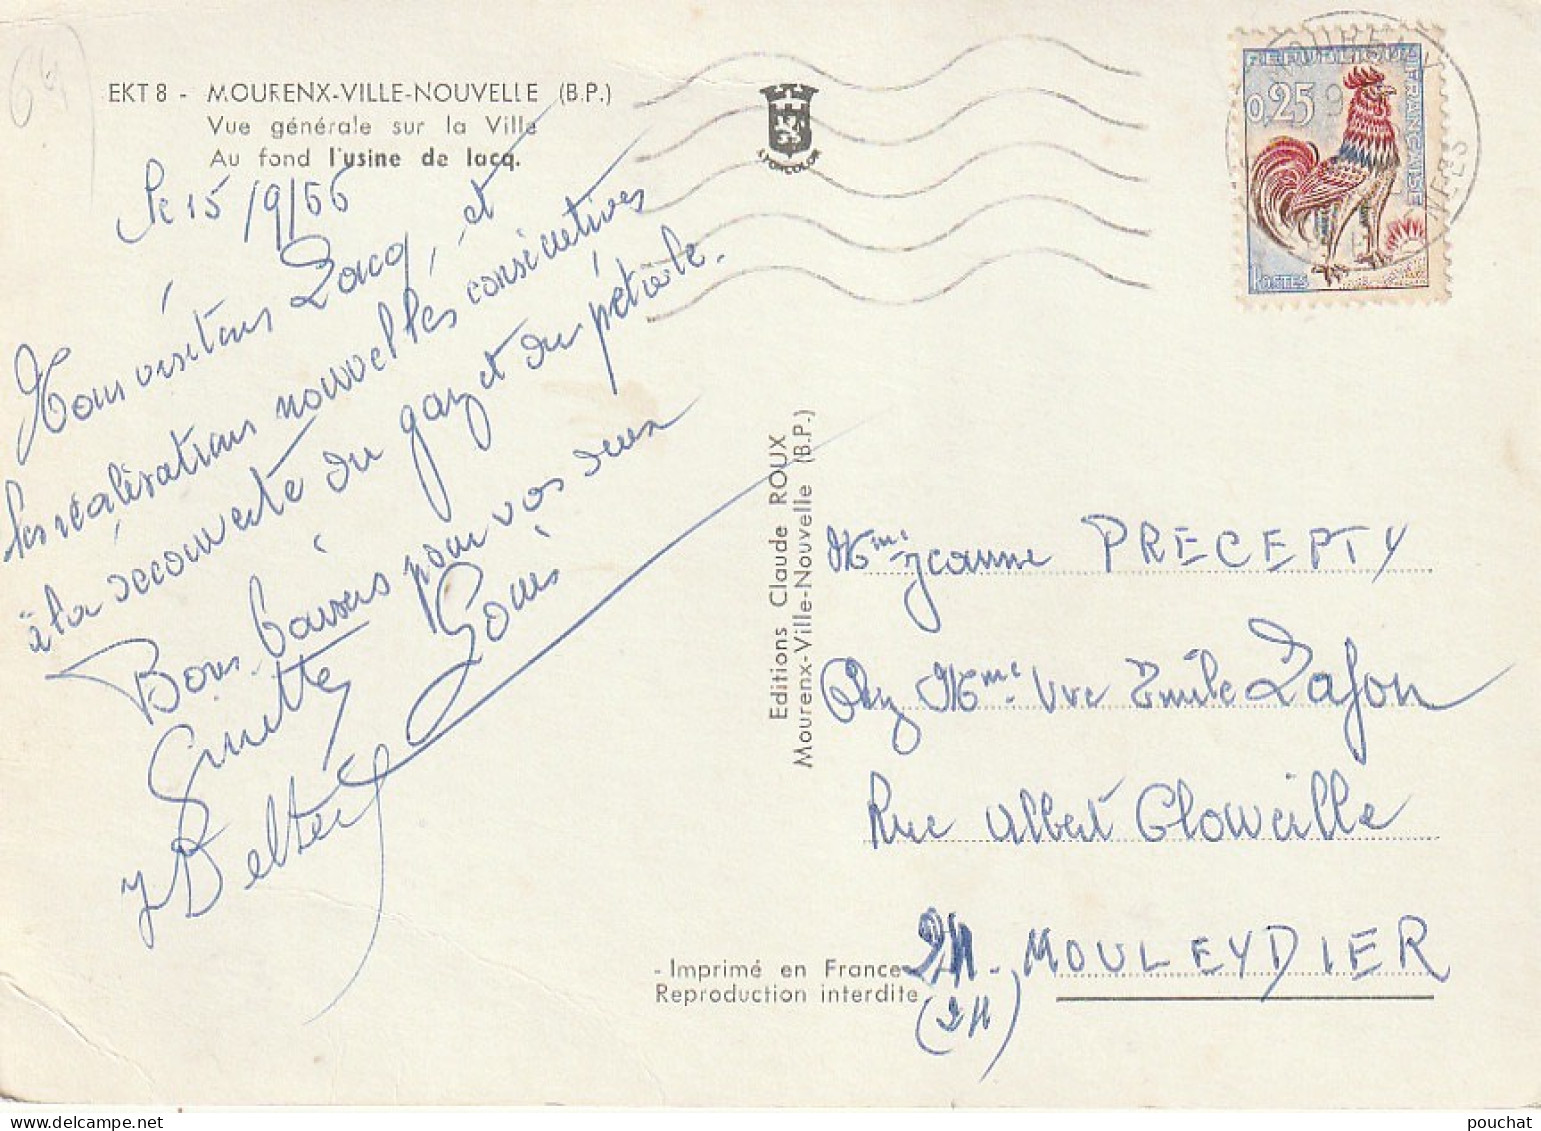 64
EKT 8 - MOURENX-VILLE-NOUVELLE (B.P.)
Vue générale sur la Ville
Au fond l'usine de lacq.
Le 15/9/66
Nous visitons Lacq, et
les réalisations nouvelles consécutives
à la découverte du gaz et du pétrole.
Bons baisers pour vos deux
Ginette
LYONCOLOR
REPUBLIQUE FRANÇAISE
0,25
POSTES
Editions Claude ROUX
Mourenx-Ville-Nouvelle (B.P.)
Mme Jeanne PRECEPTY
Chez Mme Vve Emile Lafon
Rue Albert Cloweille
24 - MOULEYDIER
(24)
- Imprimé en France -
Reproduction interdite
pouchat